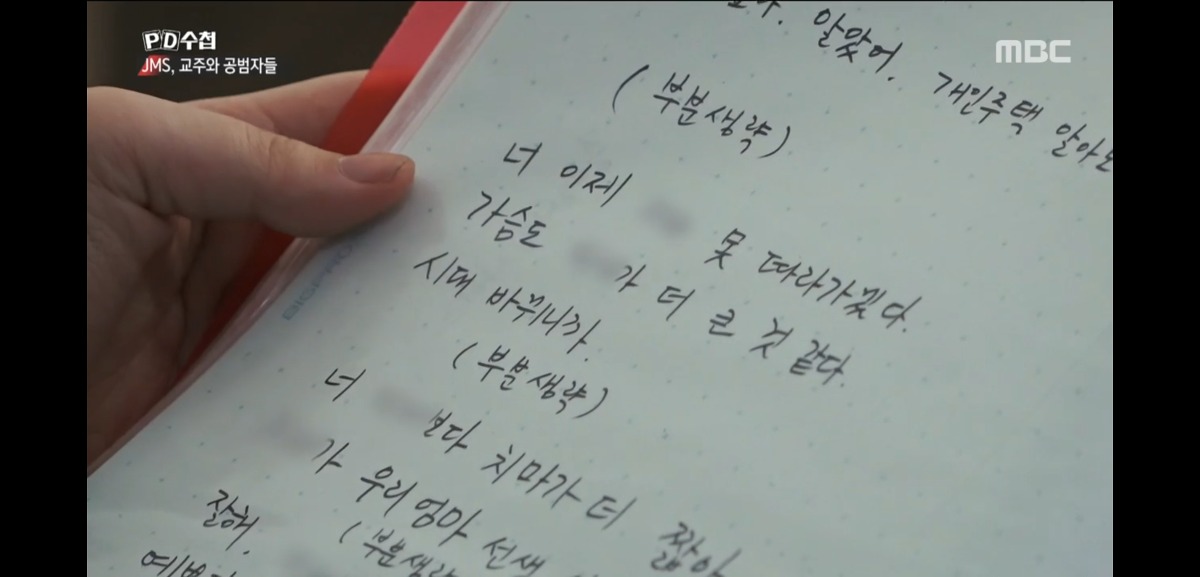 PD수첩
JMS, 교주와 공범자들
MBC
알맞어. 개인주택 알아보
(부분생략)
너 이제 못 따라가겠다.
가슴도 가 더 큰 것 같다.
시대 바뀌니까.
(부분생략)
너 보다 치마가 더 짧아
가 우리 엄마 선생
잘해. (부분생략